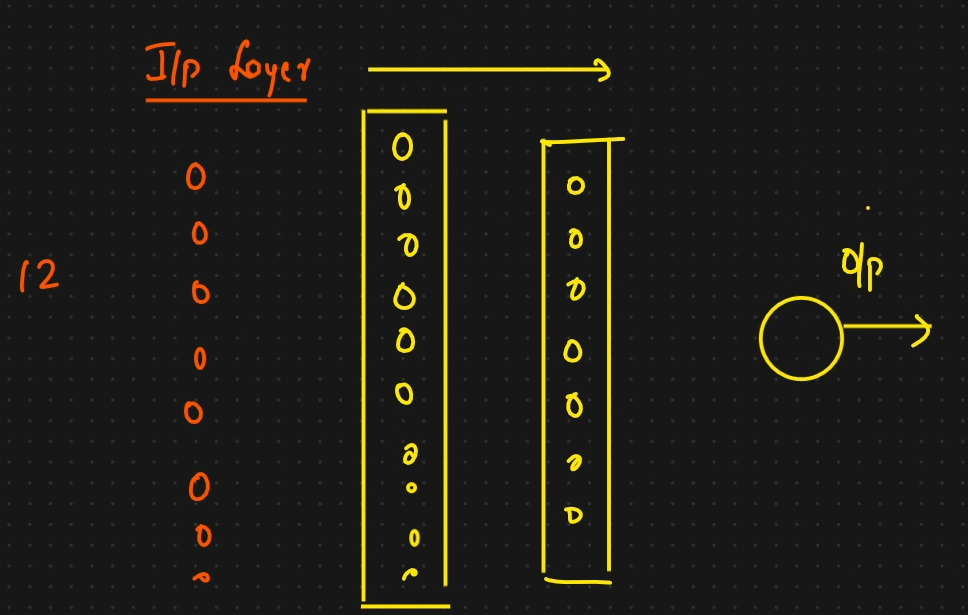 I/p Layer
12
O/p